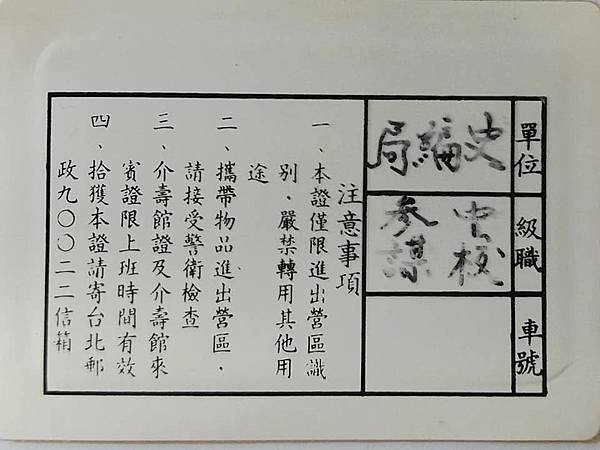 單位
史編局
級職
中校
參謀
車號
注意事項
一、本證僅限進出營區識
別、嚴禁轉用其他用
途
二、攜帶物品進出營區．
請接受警衛檢查
三、介壽館證及介壽館來
賓證限上班時間有效
四、拾獲本證請寄台北郵
政九〇〇二二信箱